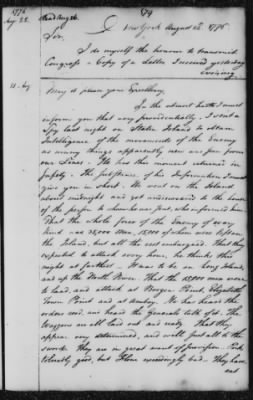 1776
Aug 22.
Read Aug 26.
New York August 22d 1776
Sir,
I do myself the honour to transmit
Congress a Copy of a Letter I received yesterday
evening
21 Aug
May it please your Excellency,
In the utmost haste I must
inform you that very providentially, I sent a
Spy last night on Staten Island to obtain
Intelligence of the movements of the Enemy
as many things apparently new are seen from
our Lines. He has this moment returned in
safety. The substance of his Information I must
give you in short. He went on the Island
about midnight and got undiscovered to the house
of the person to whom he was sent, who informed him
That the whole force of the Enemy of every
kind was 35,000 Men, 15,000 of whom were left on
the Island, but all the rest embarqued. That they
expected to attack every hour, he thinks this
night at farthest. It was to be on long Island,
and up the North River. That the 15,000 men were
to land, and attack at Bergen Point, Elizabeth
Town Point and at Amboy. He has heard the
orders read, and heard the Generals talk of it. The
Waggons are all laid out and ready. That they
appear very determined, and will put all to the
sword. They are in great want of provision. Pork
tolerably good, but Flour exceedingly bad. They have
eat